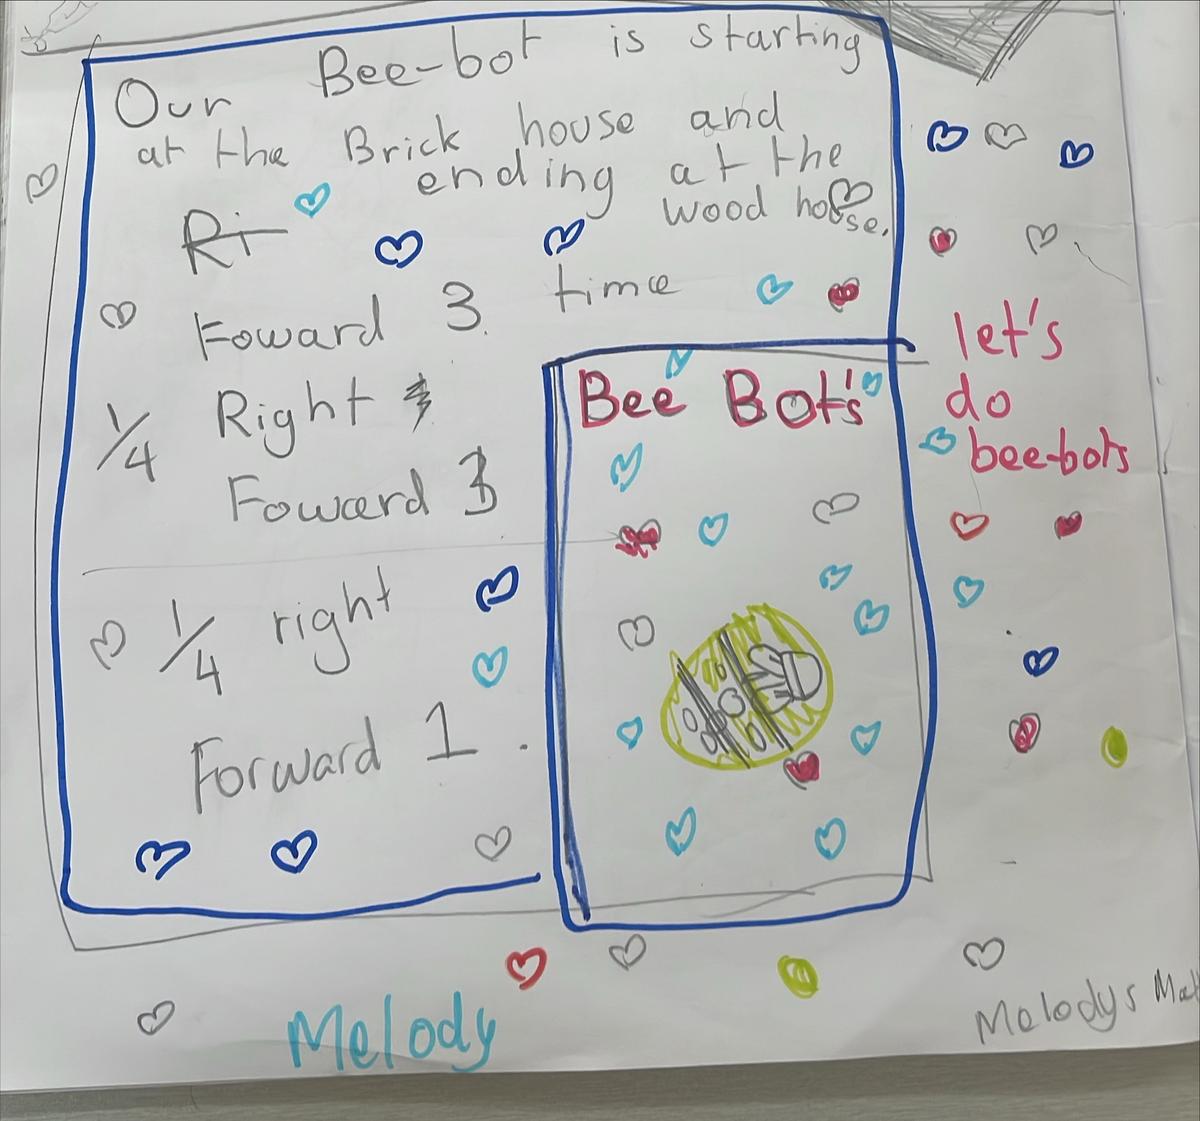 Our Bee-bot is starting
at the Brick house and
ending at the
wood house.
Ri
Foward 3 time
1/4 Right
Foward 3
1/4 right
Forward 1.
Bee Bot's
let's
do
bee-bots
Melody
Melodys